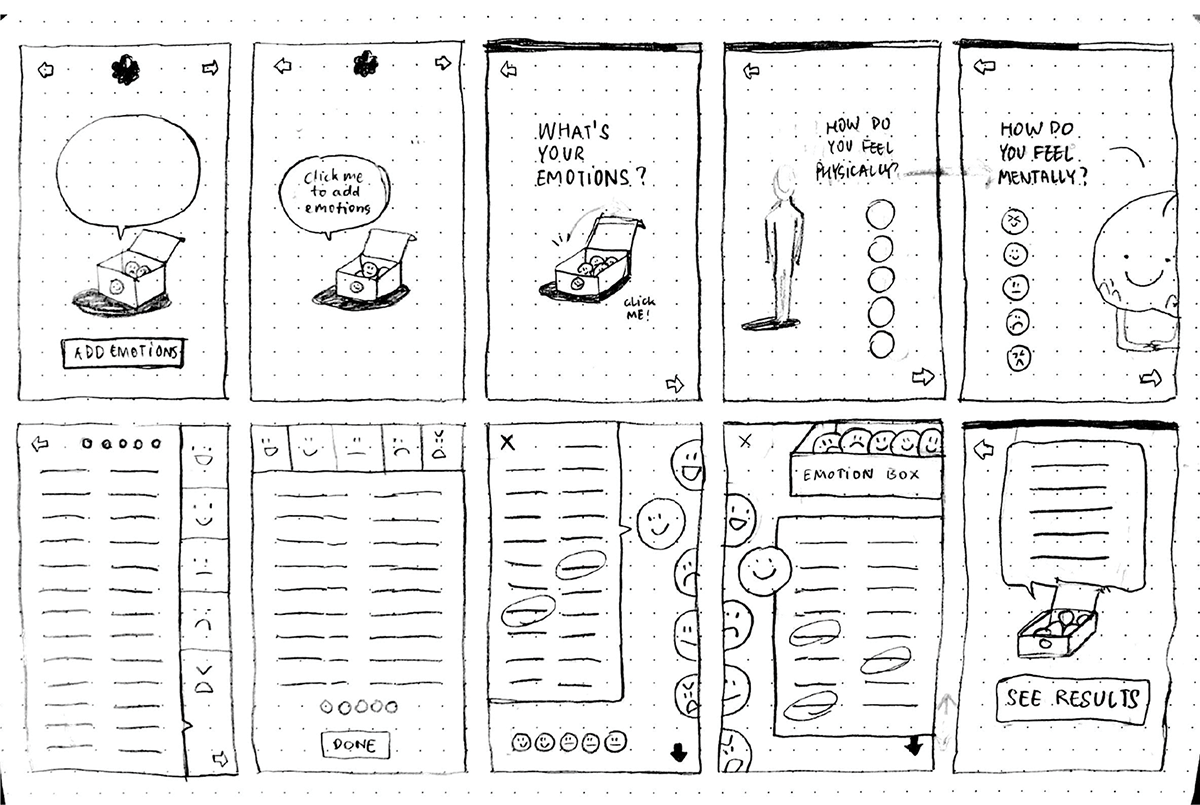 ADD EMOTIONS
Click me
to add
emotions
WHAT'S
YOUR
EMOTIONS?
CLICK
ME!
HOW DO
YOU FEEL
PHYSICALLY?
HOW DO
YOU FEEL
MENTALLY?
DONE
X
X
EMOTION BOX
SEE RESULTS